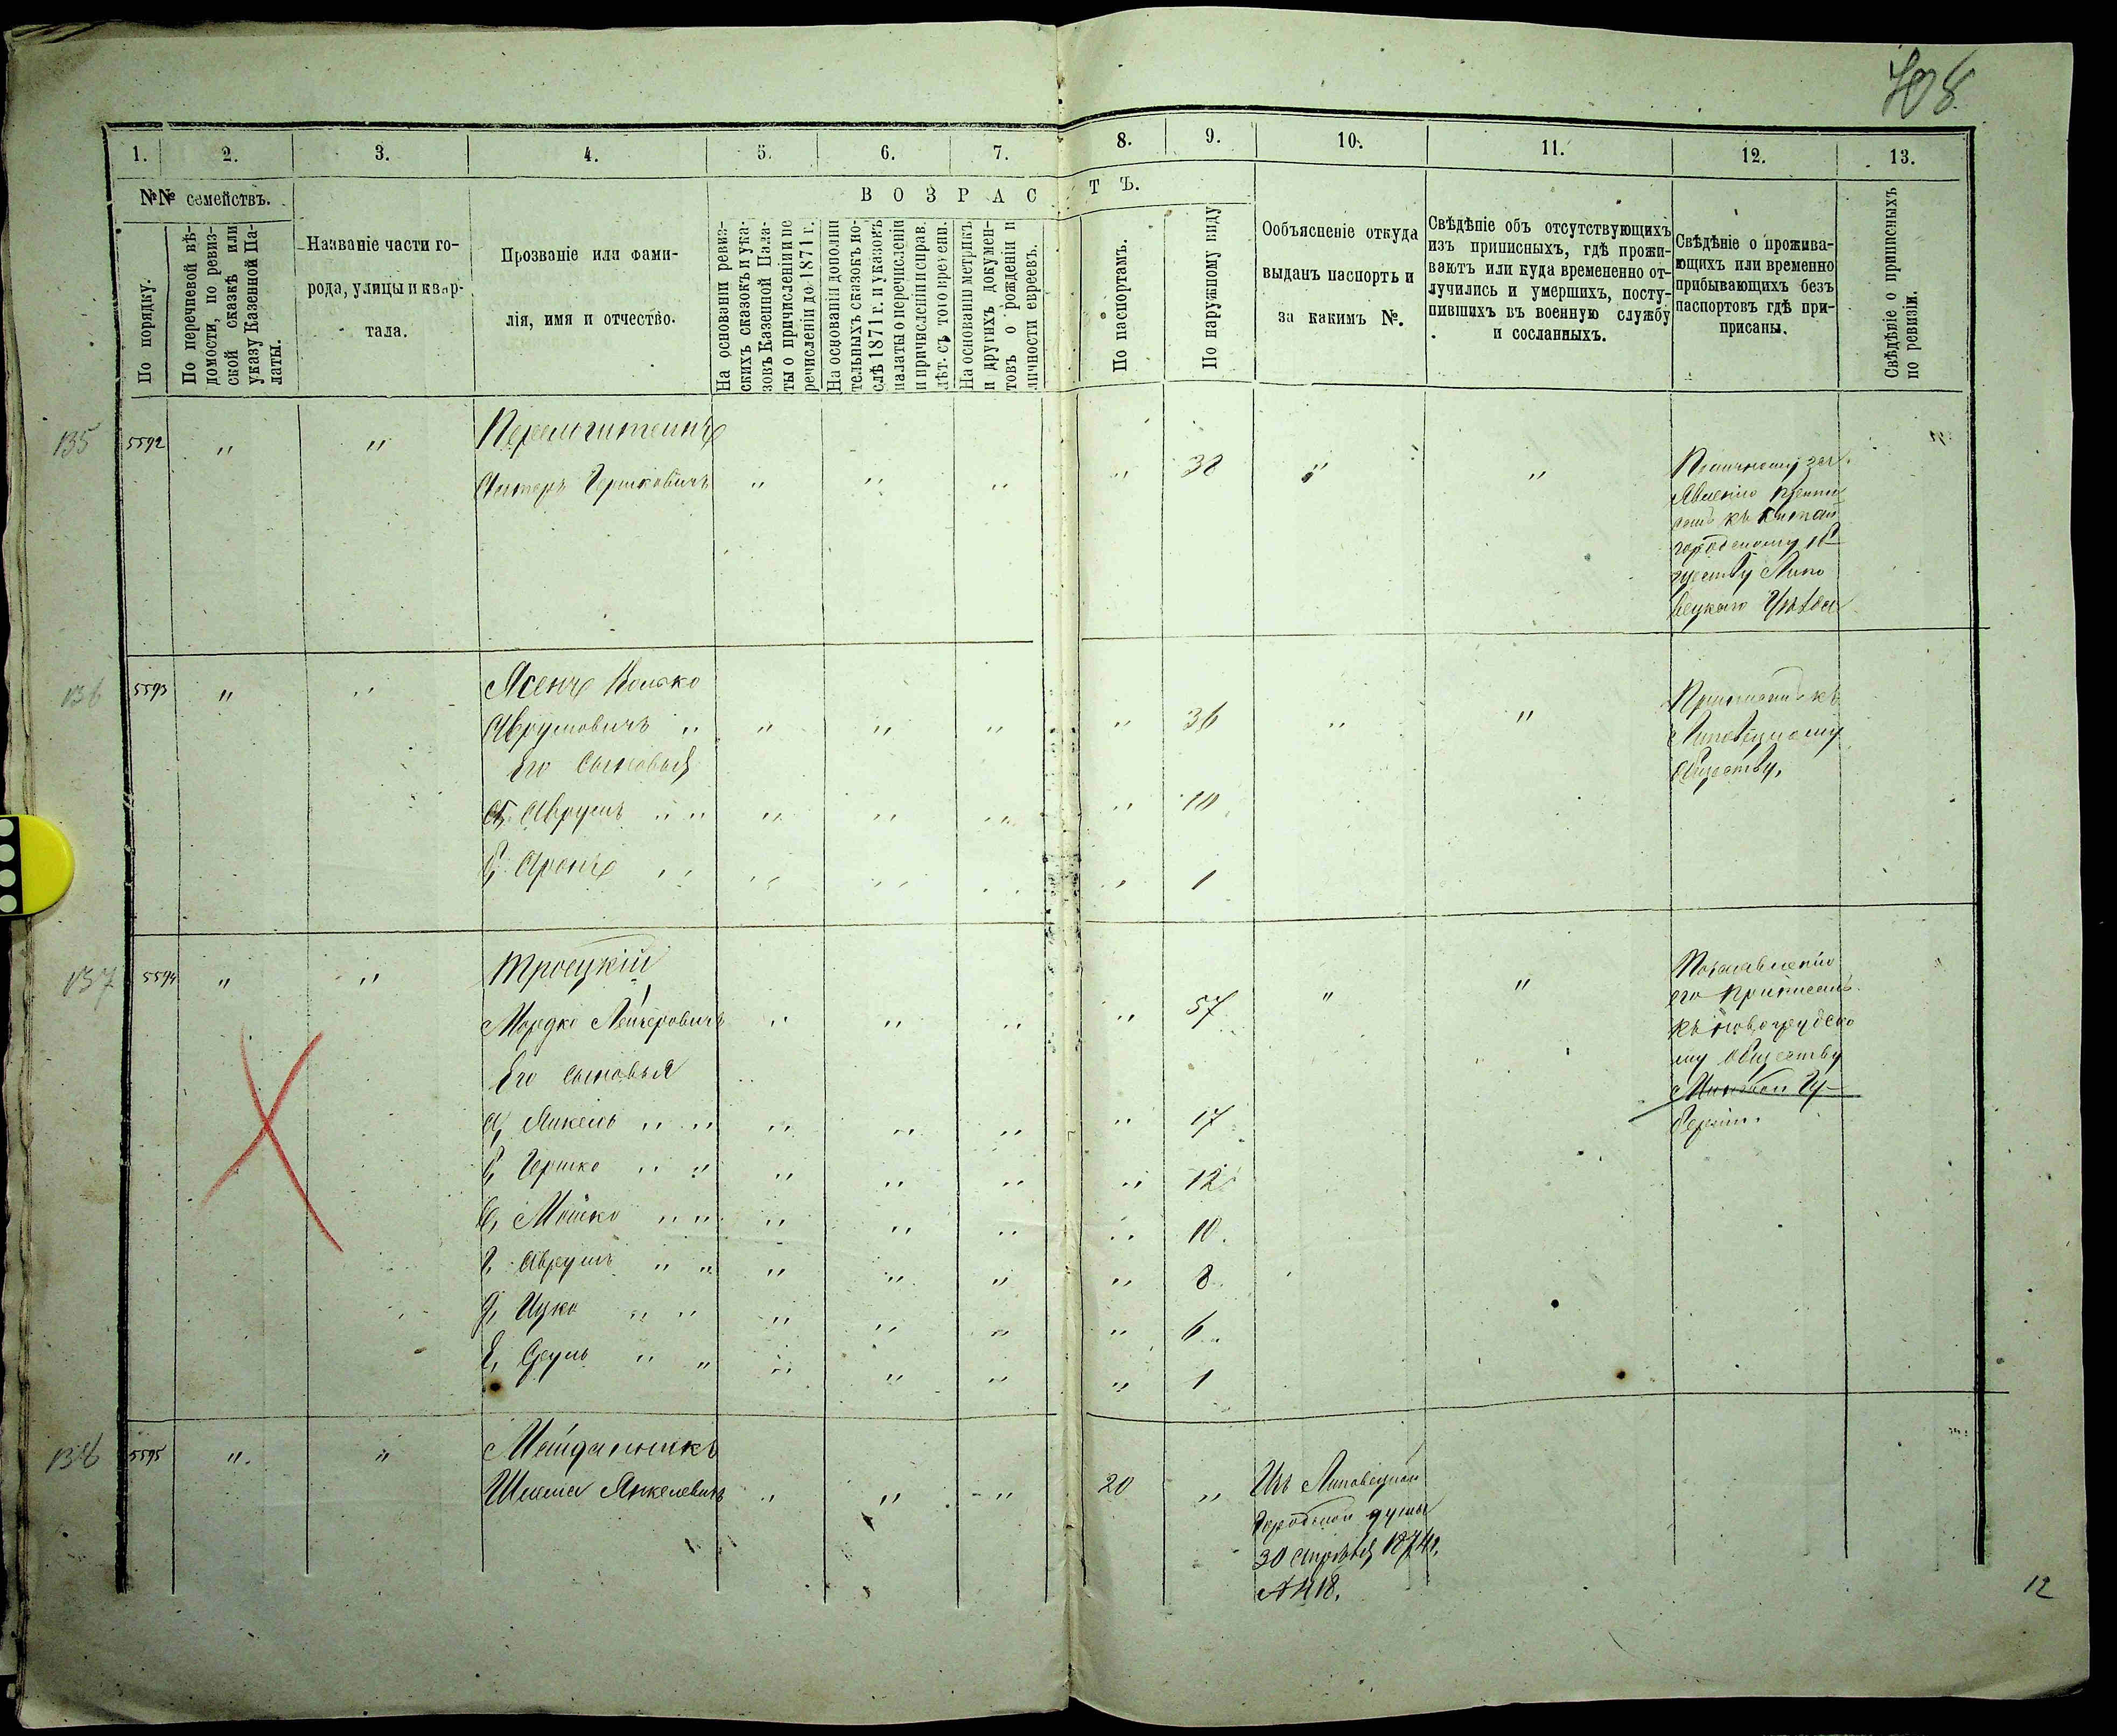 408
1. 2. 3. 4. 5. 6. 7. 8. 9. 10. 11. 12. 13.
№№ семействъ.
По порядку.
По перечневой вѣ-
домости, по ревиз-
ской сказкѣ или
указу Казенной Па-
латы.
Названіе части го-
рода, улицы и квар-
тала.
Прозваніе или фами-
лія, имя и отчество.
ВОЗРАСТЪ.
На основаніи ревиз-
скихъ сказокъ и ука-
зовъ Казенной Пала-
ты о причисленіи и пе
речисленіи до 1871 г.
На основаніи дополни
тельныхъ сказокъ по-
слѣ 1871 г. и указовъ
палаты о перечисленіи
и причисленіи и справ.
лѣт. съ того времени.
На основаніи метрикъ
и другихъ докумен-
товъ о рожденіи и
личности евреевъ.
По паспортамъ.
По наружному виду
Ообъясненіе откуда
выданъ паспортъ и
за какимъ №.
Свѣдѣніе объ отсутствующихъ
изъ приписныхъ, гдѣ прожи-
ваютъ или куда временно от-
лучились и умершихъ, посту-
пившихъ въ военную службу
и сосланныхъ.
Свѣдѣніе о прожива-
ющихъ или временно
прибывающихъ безъ
паспортовъ гдѣ при-
писаны.
Свѣдѣніе о приписныхъ
по ревизіи.
135 5592 " "
Гершковичъ " " " " 32 " "
По личному зая
явленію
къ Китай
городскому об
ществу Липо
вецкаго Уѣзда
136 5593 " " Ясенъ Волько
Аврумовичъ " " " " " 36 " "
Его сыновья
а, Аврумъ " " " " " " 10
б, Аронъ " " " " " 1
Приписанъ къ
Липовецкому
обществу,
137 5594 " " Троецкій
Мордко Лейзеровичъ " " " " 57 " "
Его сыновья
а, Янкель " " " " " " 17
б, Гершко " " " " " " 12
в, Мошко " " " " " " 10.
г, Аврумъ " " " " " " 8
д, Ицко " " " " " " 6
е, Сруль " " " " " " 1
По заявленію
его приписанъ
къ новогрудско
му обществу
Минской Гу-
берніи.
138 5595 " " Майданникъ
Шлема Янкелевичъ " " " 20 "
Изъ Липовецкой
Городской думы
30 Апрѣля 1874 г.
№ 418.
12